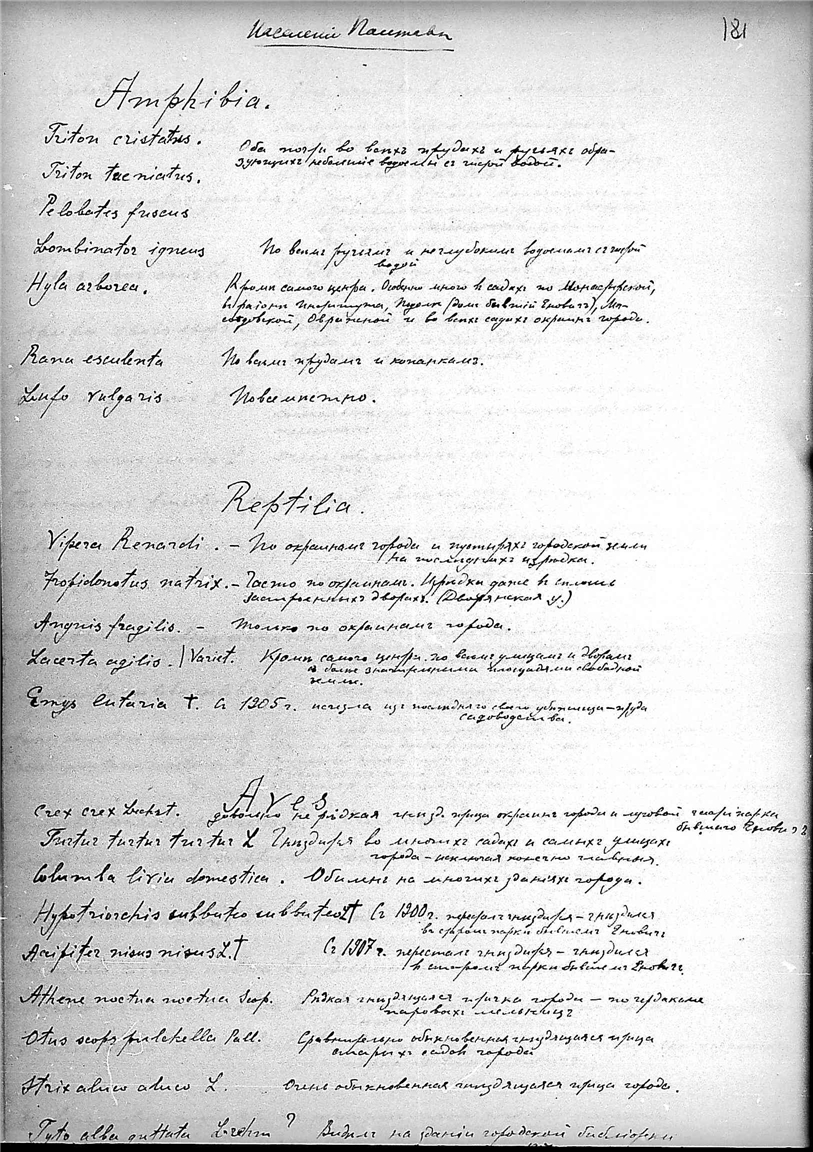 Населеніе Полтавы
181
Amphibia.
Triton cristatus. Оба почти во всѣхъ прудахъ и ручьяхъ обра-
зующихъ небольшіе водоемы съ чистой водой.
Triton taeniatus.
Pelobates fuscus
Bombinator igneus По всѣмъ ручьямъ и неглубокимъ водоемамъ съ чистой
водой
Hyla arborea. Кромѣ самого центра. Особенно много въ садахъ по Монастырской,
въ районѣ Института, (домъ бывшій Еновича),
Овражной и во всѣхъ садахъ окраинъ города.
Rana esculenta По всѣмъ прудамъ и копанкамъ.
Bufo vulgaris Повсемѣстно.
Reptilia.
Vipera Renardi. – По окраинамъ города и пустыряхъ городской земли
на послѣднихъ изрѣдка.
Tropidonotus natrix. – Часто по окраинамъ. Изрѣдка даже въ сплошь
застроенныхъ дворахъ. (Дворянская у.)
Anguis fragilis. – Только по окраинамъ города.
Lacerta agilis. | Variet. Кромѣ самого центра. по всѣмъ улицамъ и дворамъ
съ болѣе значительными площадями свободной
земли.
Emys lutaria †. Съ 1905 г. исчезла изъ послѣдняго своего убѣжища – пруда
садоводства.
Aves
Crex crex Bechst. довольно не рѣдкая гнѣзд. птица окраинъ города и луговой части парка
бывшаго Еновича
Turtur turtur turtur L Гнѣздится во многихъ садахъ и самыхъ улицахъ
города – исключая конечно главныя.
Columba livia domestica. Обильна на многихъ зданіяхъ города.
Hypotriorchis subbuteo subbuteo L † Съ 1900 г. пересталъ гнѣздиться – гнѣздился
въ старомъ паркѣ бывшемъ Еновича
Accipiter nisus nisus L. † Съ 1907 г. пересталъ гнѣздиться – гнѣздился
въ старомъ паркѣ бывшемъ Еновича.
Athene noctua noctua Scop. Рѣдкая гнѣздящаяся птица города – по чердакамъ
паровыхъ мельницъ
Otus scops pulchella Pall. Сравнительно обыкновенная гнѣздящаяся птица
старыхъ садовъ города
Strix aluco aluco L. Очень обыкновенная гнѣздящаяся птица города.
Tyto alba guttata Brehm ? Видѣлъ на зданіи городской библіотеки